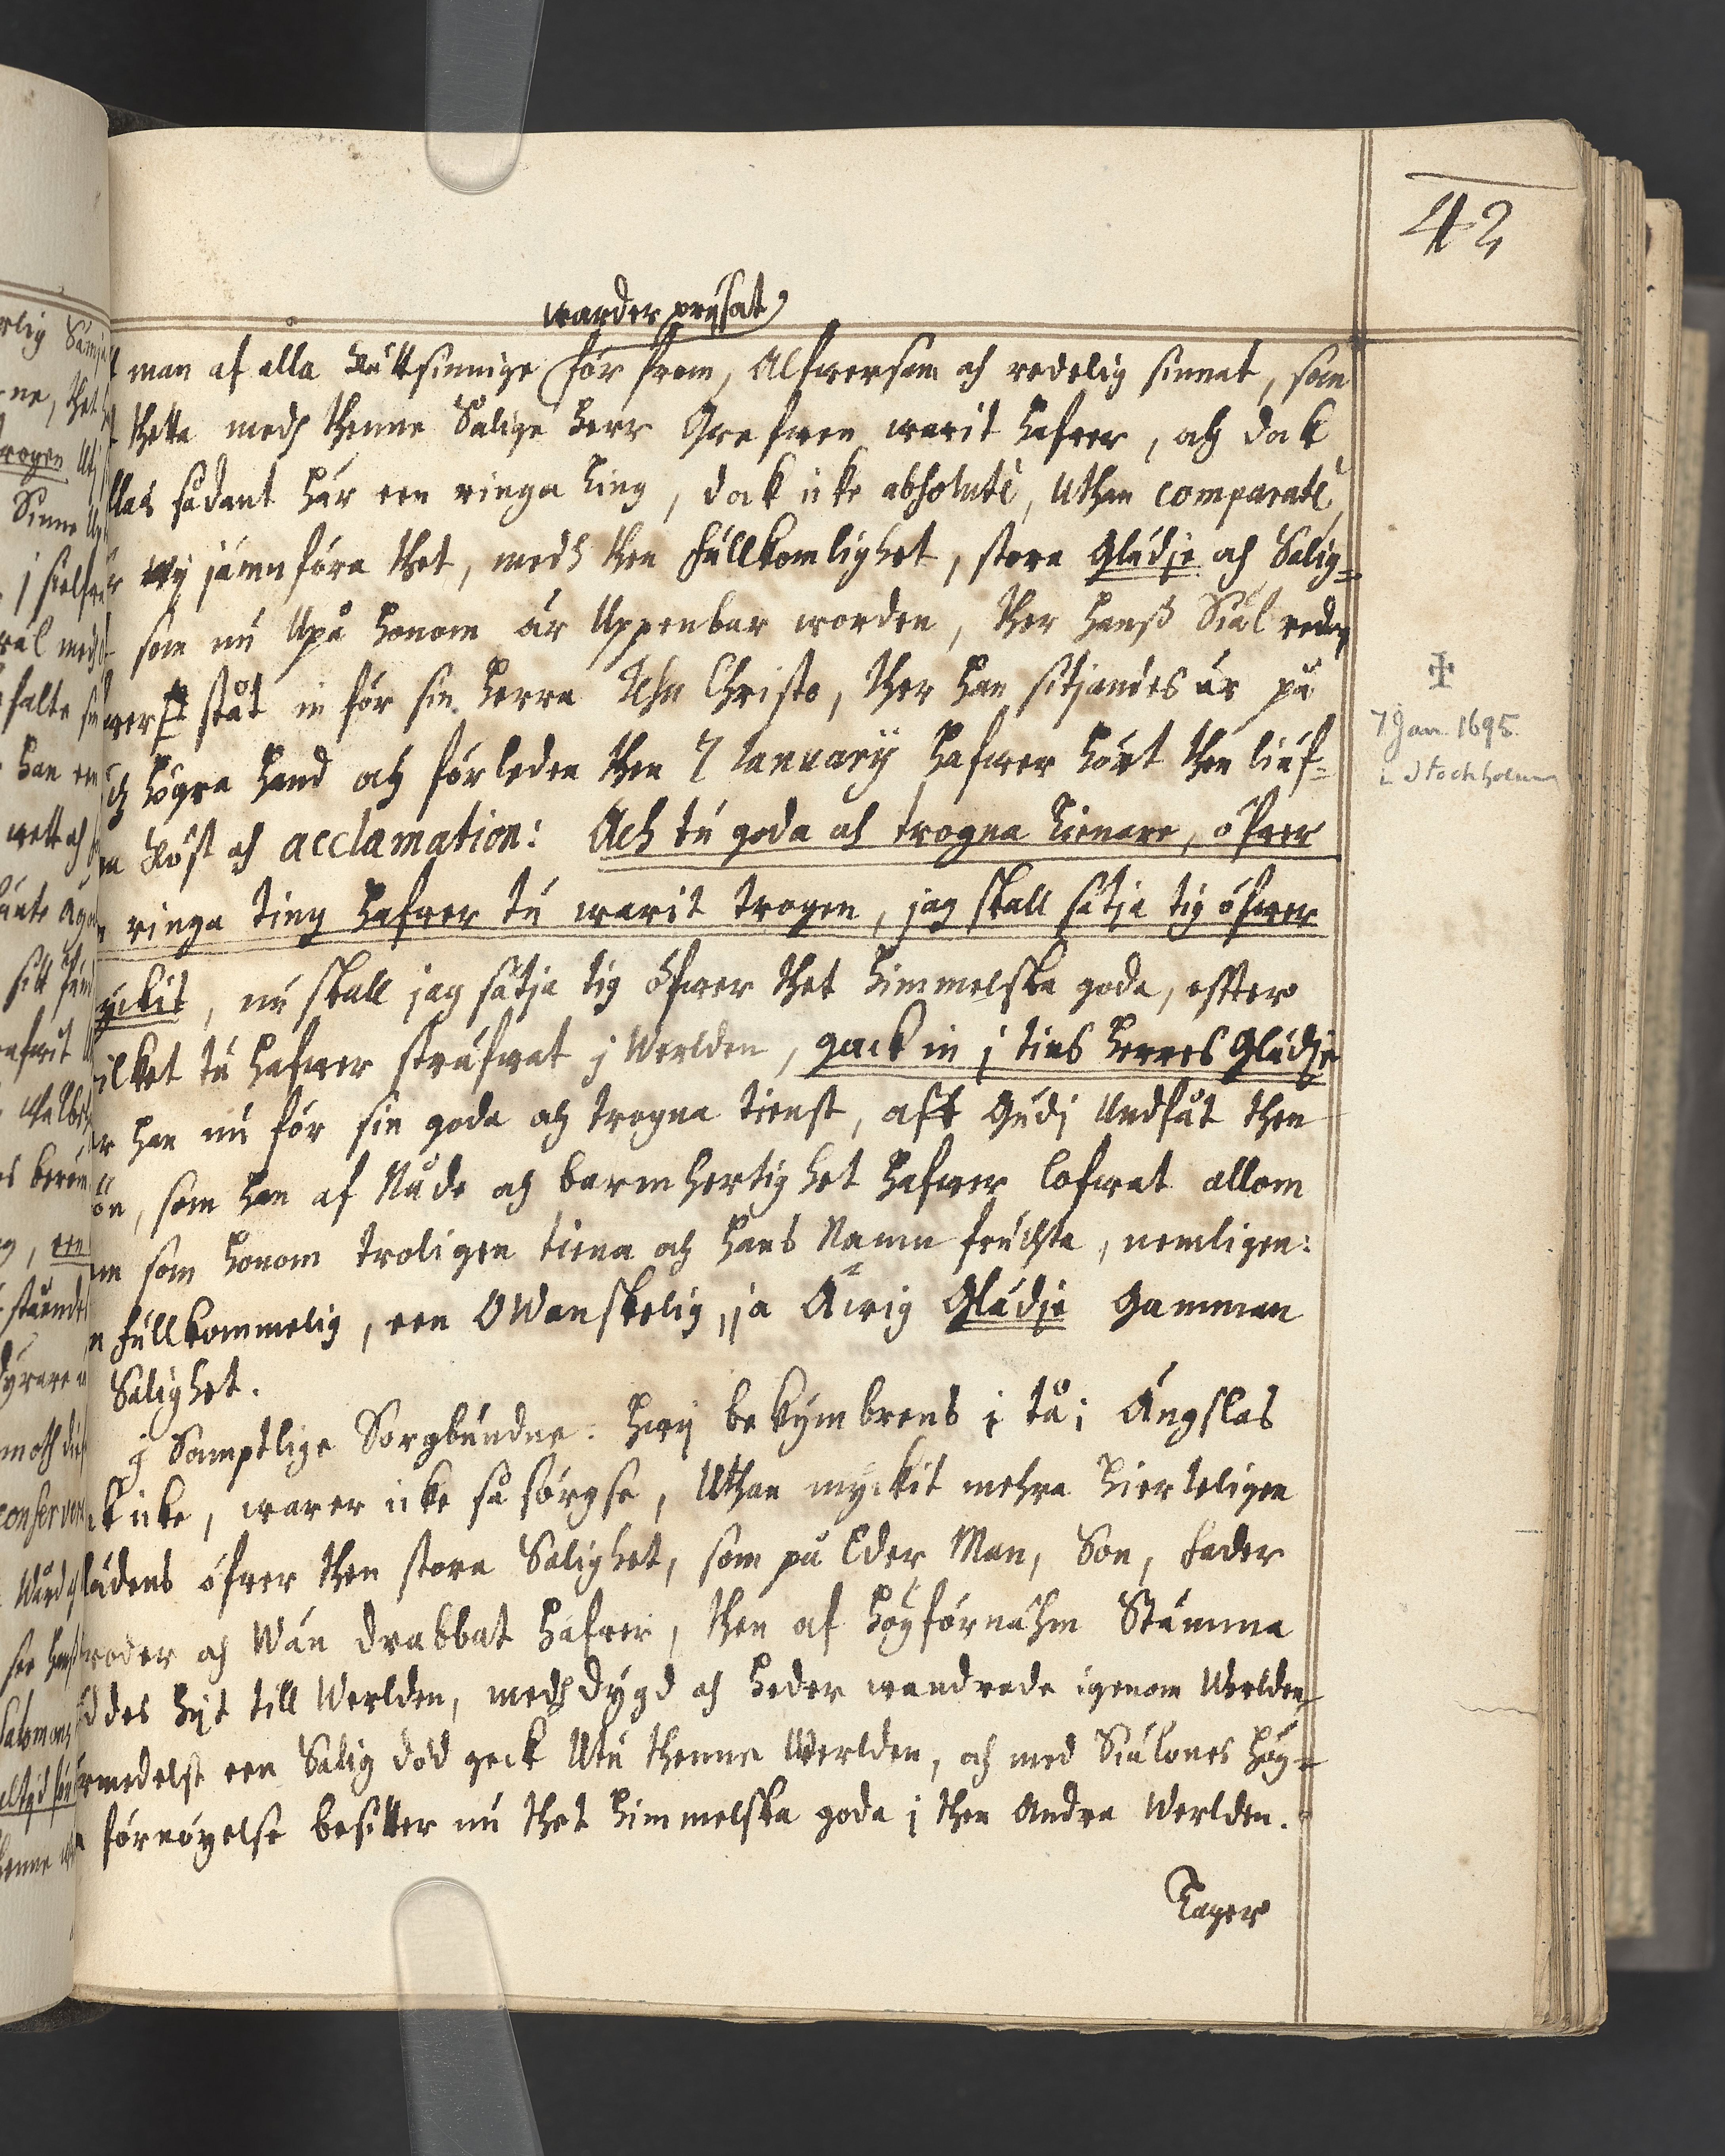 42
warder prijsat
man af alla Rättsinnige för from, Alfwersam och redelig sinnat, som
thetta medh thenne Salige Herr Grefwen warit hafwer, och dock
llas sådant här een ringa ting, dock icke absoluté, Uthan comparaté,
wij jämnföra thet, medh then Fullkomlighet, stora Glädje och Salig=
som nu Upå honom är Uppenbar worden, ther hanß Siäl redan
ståt in för sin Herra Jesu Christo, ther han sitjandes är på
högra hand och förleden then 7 January hafwer hört then liuf=
Röst och acclamation: Ach tu goda och trogna tienare, öfwer
ringa ting hafwer tu warit trogen, jag skall sätja tig öfwer
yckit, nu skall jag sätja tig öfwer thet himmelska goda, effter
ilket tu hafwer sträfwat j Werlden, gack in j tins Herres Glädje
han nu för sin goda och trogna tienst, aff Gudj Undfåt then
ön, som han af Nåde och barmhertighet hafwer lofwat allom
som honom troligen tiena och hans Namn fruchta, nemligen:
Fullkommelig, een Owanskelig, ja Äwig Glädje Gamman
Salighet.
j Samptlige Sorgbundne. Hwij bekymbrens i tå; Ängslas
icke, warer icke så sörgse, Uthan myckit mehra hierteligen
lädens öfwer then stora Salighet, som på Eder Man, Son, Fader
roder och Wän drabbat hafwer, then af höyförnähm Stamma
ddes hijt till Werlden, medh dygd och heder wandrade igenom Werlden,
rmedelst een Salig död geck Utu thenna Werlden, och med Siälones höy=
förnöyelse besitter nu thet himmelska goda j then Andra Werlden.
Tager
7 Jan. 1695.
i Stockholm